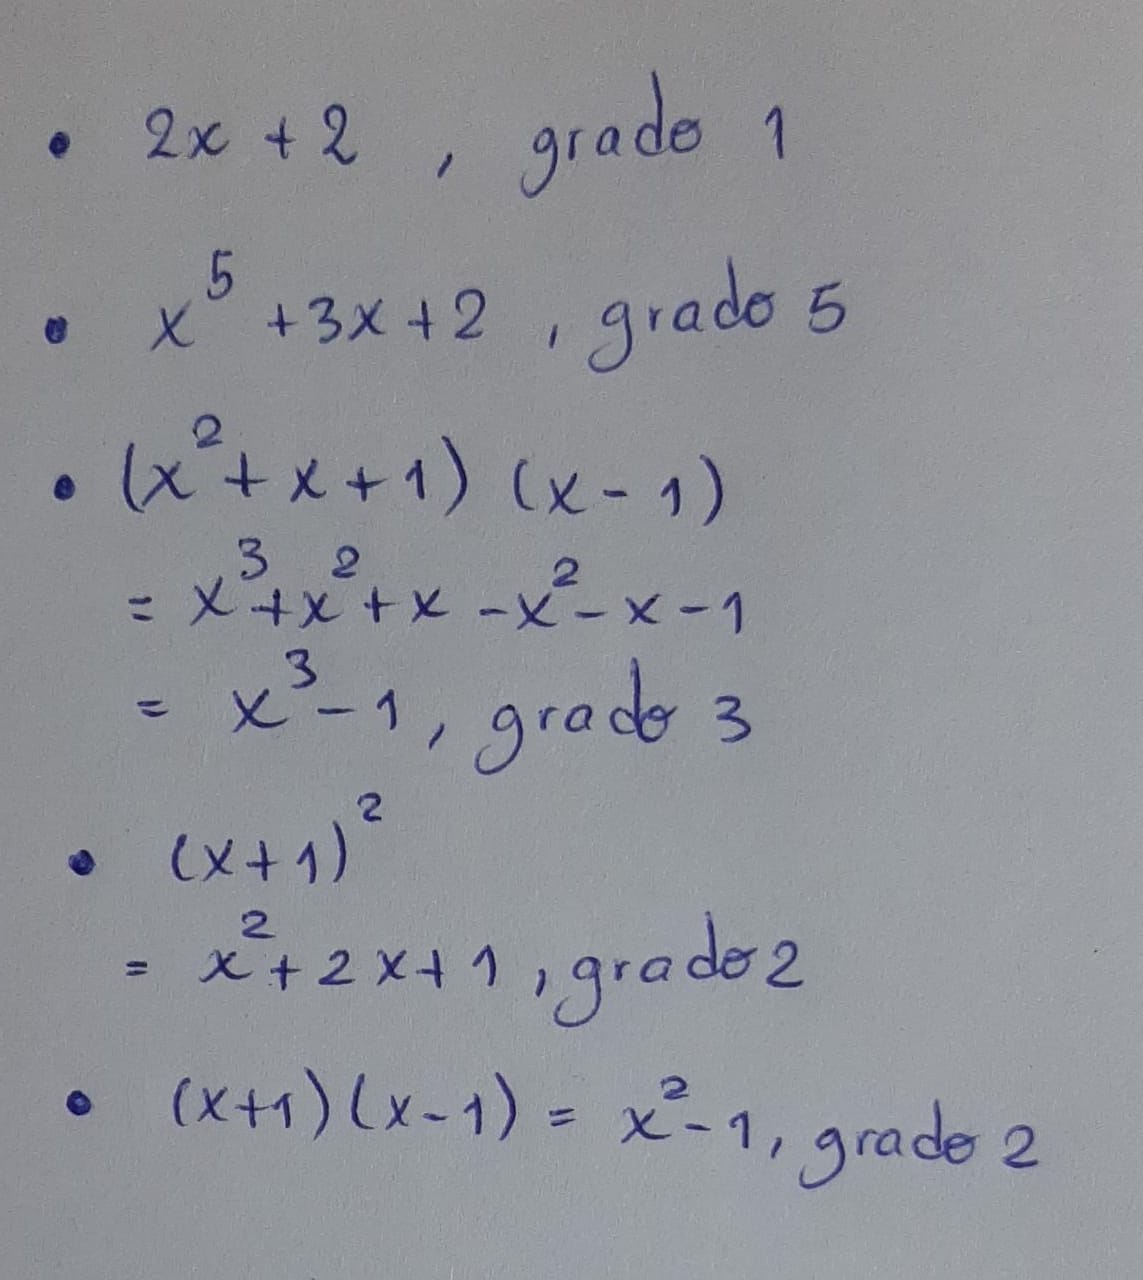 • 2x + 2 , grado 1
• x⁵ + 3x + 2 , grado 5
• (x² + x + 1) (x - 1)
= x³ + x² + x - x² - x - 1
= x³ - 1, grado 3
• (x + 1)²
= x² + 2x + 1 , grado 2
• (x+1)(x-1) = x² - 1, grado 2